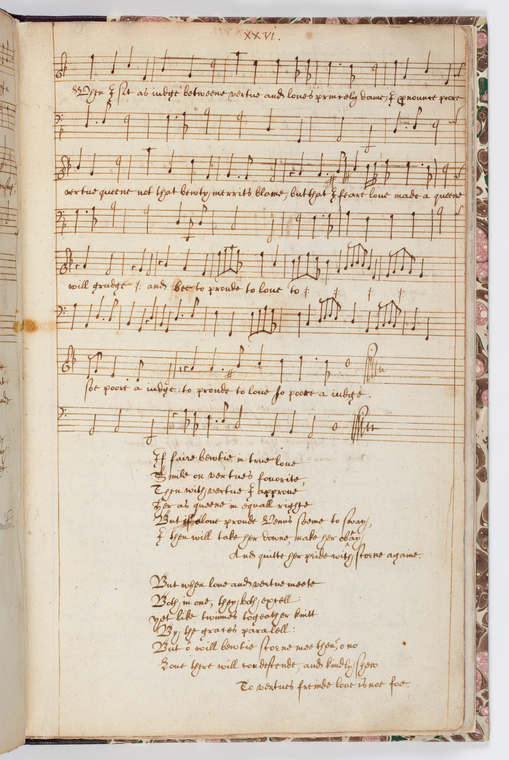 XXVI.
When I sit as iudge betweene vertue and loues princely dame, I pronounce poore
vertue queene not that bewty merrits blame, but that I feare loue made a queene
will grudge :/: and bee to proude to loue to :/: :/: :/:
soe poore a iudge: to proude to loue so poore a iudge.
If faire bewtie in true loue
Smile on vertues fauorite,
Then with vertue I approue
Her as queene in equall righte
But if alone proude Venus seeme to sway,
I then will take her downe, make her obay
And quitte her pride with scorne againe.
But when loue and vertue meete
Both in one, they both excell
yet like twinnes togeather knitt
By the graces paralell:
But ô will bewtie scorne mee then, o no
Loue there will condescende, and kindly shew
To vertues freinde loue is noe foe.